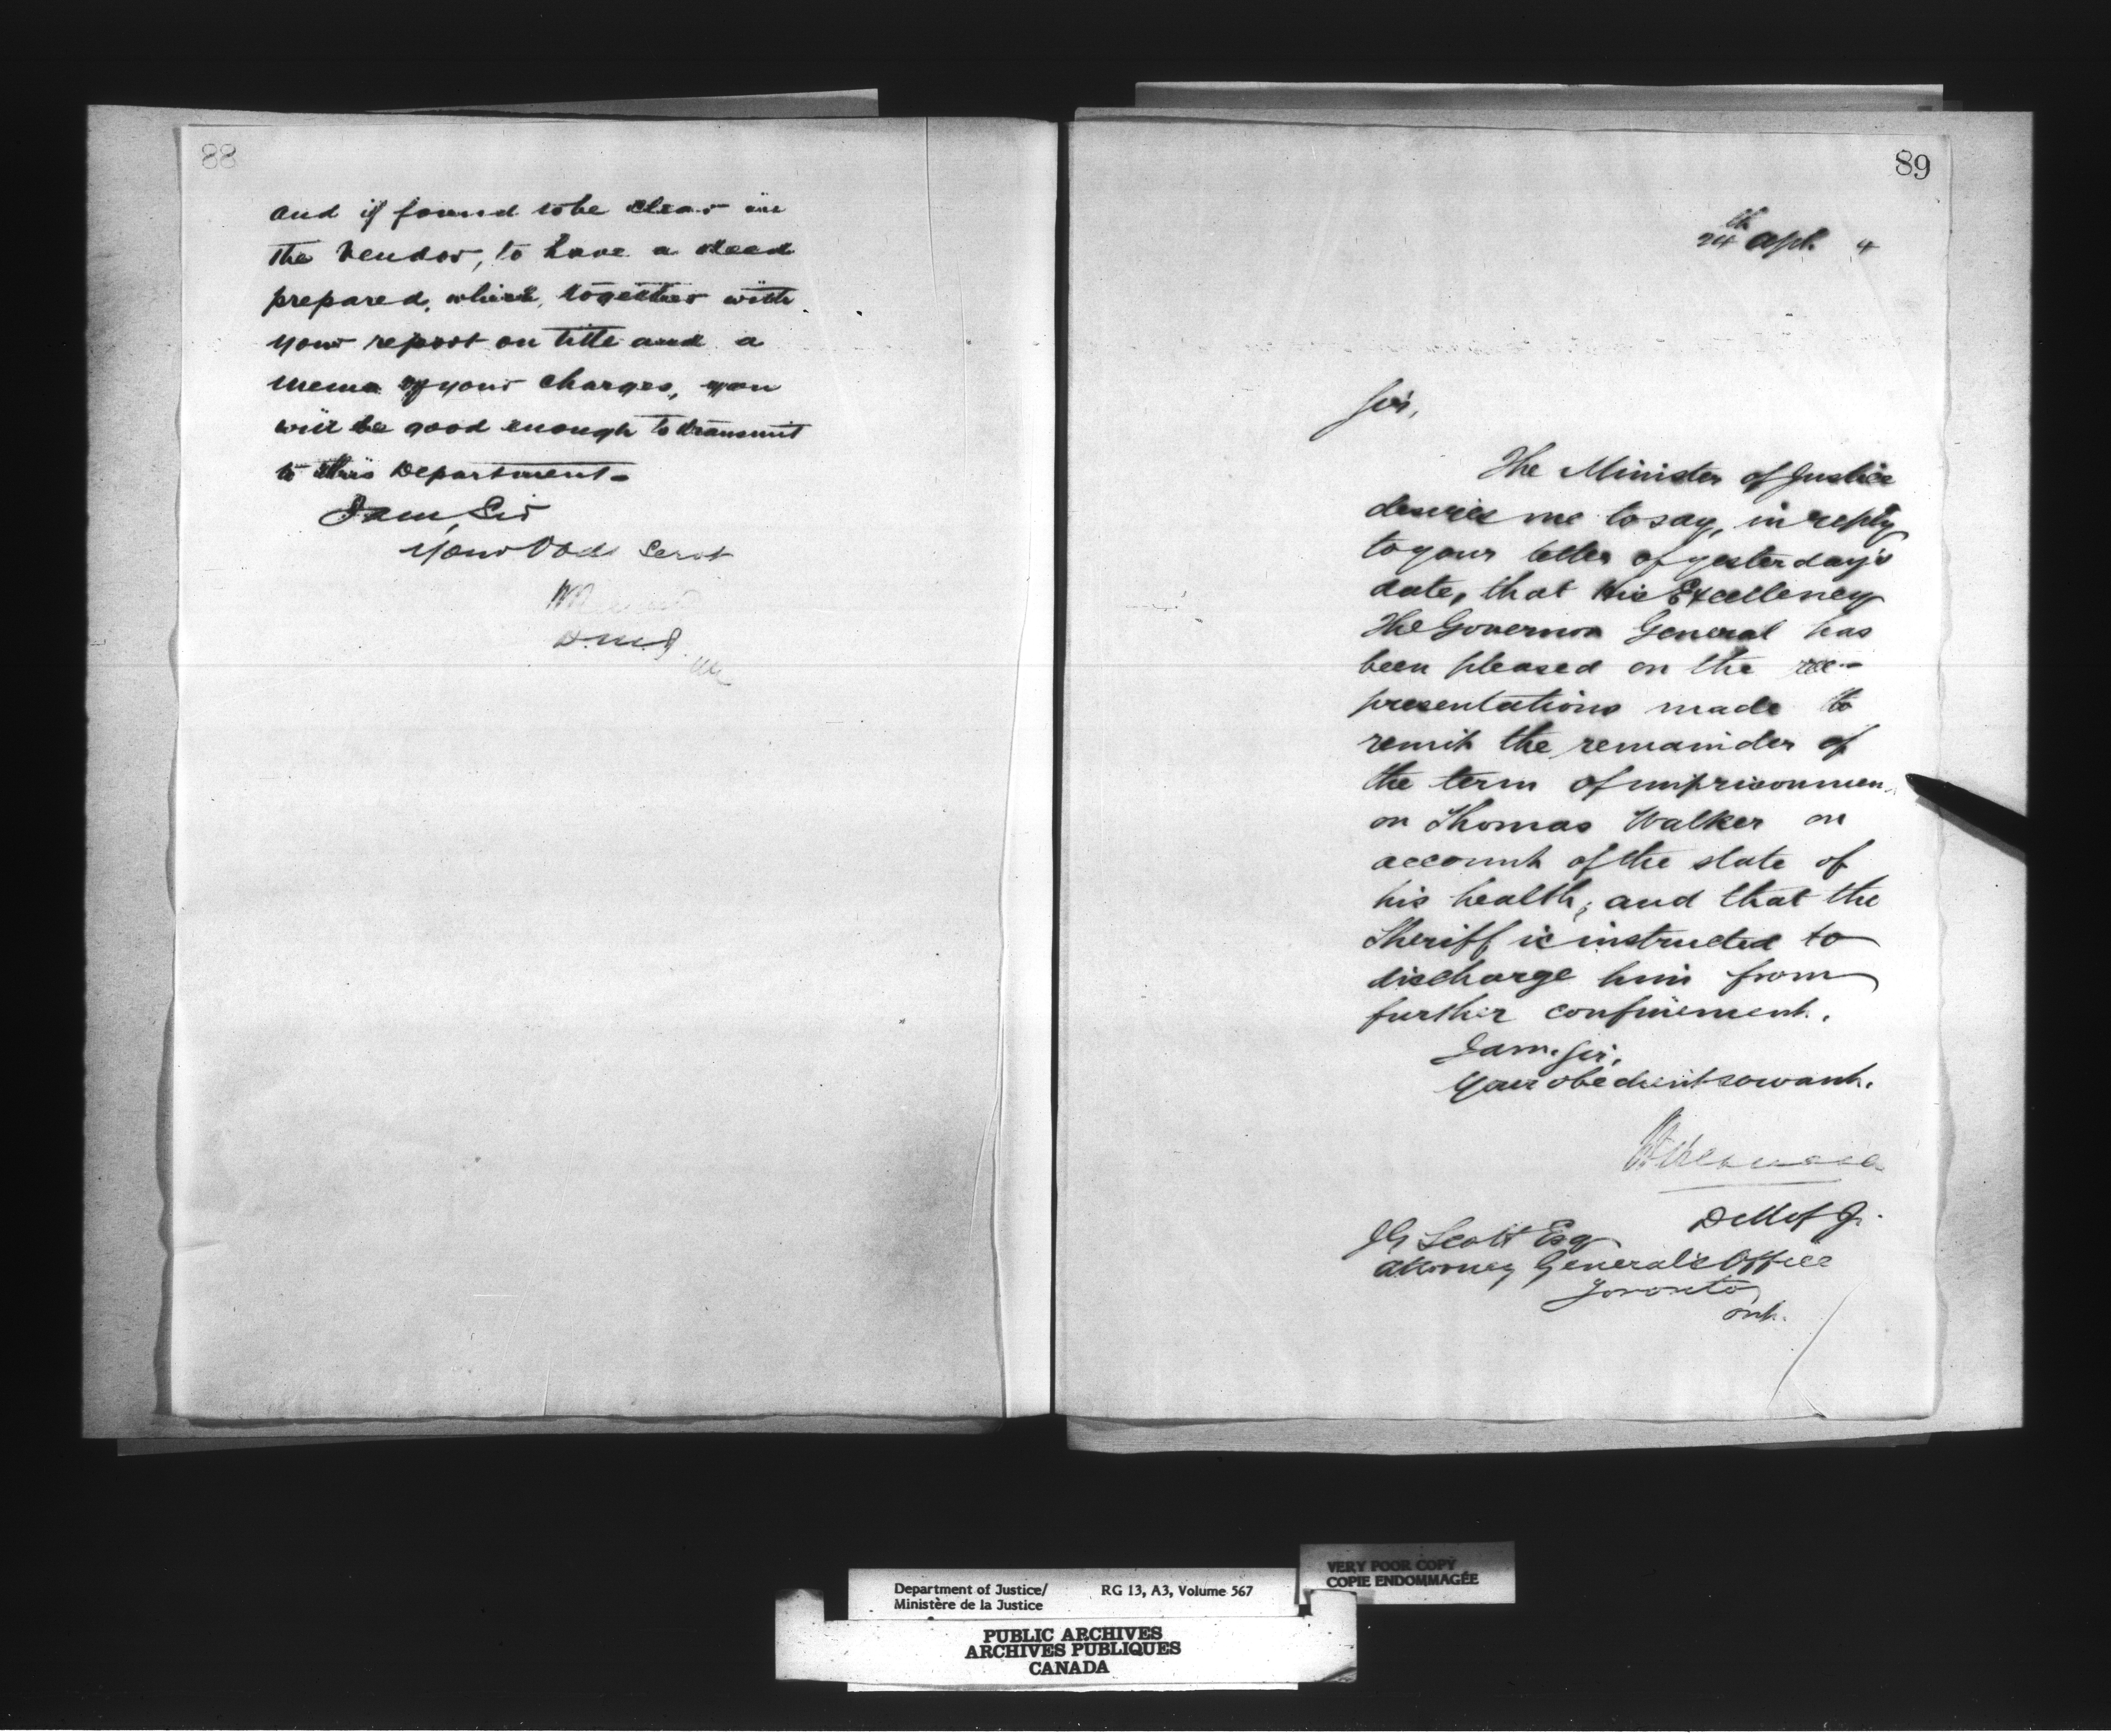 88
and if found to be clear in
the vendor, to have a deed
prepared, which, together with
your report on title and a
memo of your charges, you
will be good enough to transmit
to this Department-
I am, Sir
Your Obdt Servt
D.M.J.
89
24th Apl. 4
Sir,
The Minister of Justice
desires me to say, in reply
to your letter of yesterday's
date, that His Excellency
The Governor General has
been pleased on the re-
presentations made to
remit the remainder of
the term of imprisonmen
on Thomas Walker on
account of the state of
his health; and that the
Sheriff is instructed to
discharge him from
further confinement.
I am, Sir,
Your obedient servant.
D M of J.
J G Scott Esq
Attorney General's Office
Toronto
Ont.
VERY POOR COPY
COPIE ENDOMMAGÉE
Department of Justice/ RG 13, A3, Volume 567
Ministère de la Justice
PUBLIC ARCHIVES
ARCHIVES PUBLIQUES
CANADA